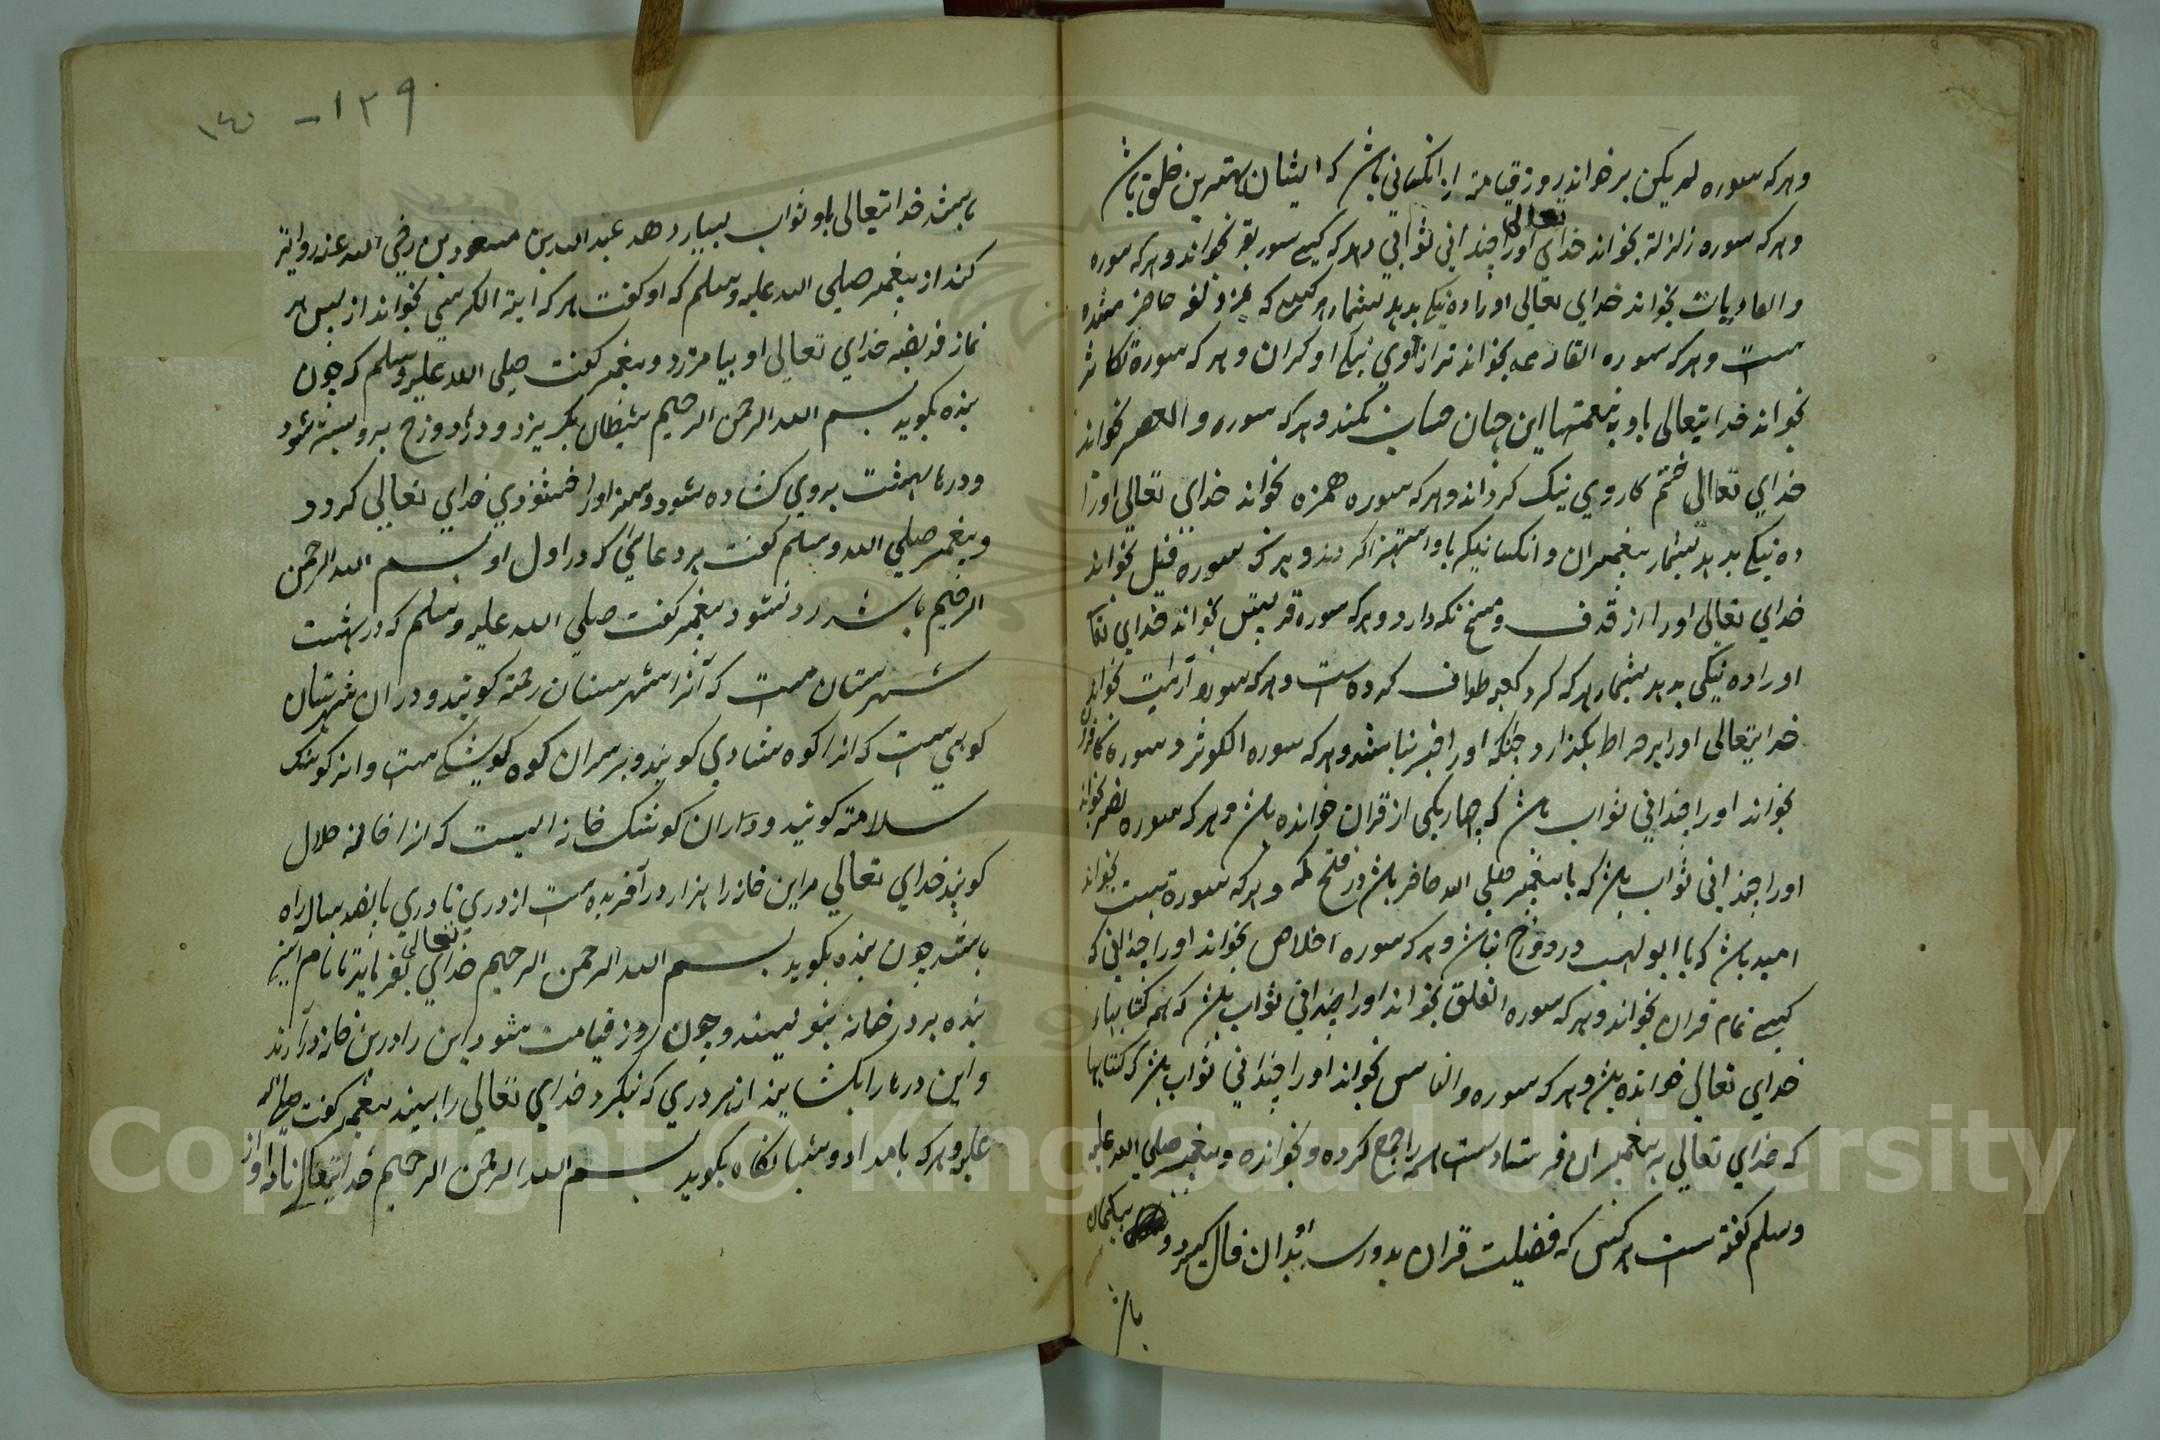 وهر که سوره لم یکن بر خواند روز قیامة از انکسانی باش که ایشان بهترین خلق باش
وهر که سوره زلزلة بخواند خدای تعالی اورا چندانی ثوابی دهد که کسی سوره بقره بخواند وهر که سوره
والعادیات بخواند خدای تعالی اورا ده نیکی بدهد بشمار هر کسی که حاضر شده
ست وهر که سوره القارعه بخواند ترازوی نیکی او کران وهر که سورة تکاثر
بخواند خدایتعالی باو به نعمتها این جهان حساب نکند وهر که سوره والعصر بخواند
خدای تعالی ختم کار وی نیک کرداند وهر که سوره همزه بخواند خدای تعالی اورا
ده نیکی بدهد بشمار پیغمبران وانکسانیکه باو استهزا کردند وهر که سوره فیل بخواند
خدای تعالی اورا از قذف ومسخ نکه دارد وهر که سورة قریش بخواند خدای تعا
اورا ده نیکی بدهد بشمار هر که کرد کعبه طواف کرده ست وهر که سوره ارایت بخواند
خدایتعالی اورا بر صراط بکذارد چنکه اورا خبر نباشد وهر که سوره الکوثر وسوره کافرون
بخواند اورا چندانی ثواب باش که چهار یکی از قران خوانده باش وهر که سوره نصر بخواند
اورا چندانی ثواب باش که با پیغمبر صلی الله حاضر باش در فتح مکه وهر که سورة تبت بخواند
امید باش که با ابو لهب در دوزخ نباش وهر که سوره اخلاص بخواند اورا چندانی که
کسی تمام قران بخواند وهر که سوره الفلق بخواند اورا چندانی ثواب باش که همه کتابهاء
خدای تعالی خوانده باش وهر که سوره والناس بخواند اورا چندانی ثواب باش که کتابها
که خدای تعالی به پیغمبران فرستاد ست همه را جمع کرده وبخوانده وپیغمبر صلی الله علیه
وسلم کفته ست هر کس که فضیلت قران بدو رسد بدان فال کیرد و بیکمان
باش
۱۳۹ - ۱٤۰
باشد خدایتعالی باو ثواب بسیار دهد عبد الله بن مسعود رضی الله عنه روایة
کند از پیغمبر صلی الله علیه وسلم که او کفت هر که ایة الکرسی بخواند از پس هر
نماز فریضه خدای تعالی او بیامرزد وپیغمبر کفت صلی الله علیه وسلم که چون
بنده بکوید بسم الله الرحمن الرحیم شیطان بکریزد ودرهاء دوزخ برو بسته شود
ودرها بهشت بروی کشاده شود وسزاوار خشنودی خدای تعالی کردد
وپیغمبر صلی الله وسلم کفت هر دعائی که در اول او بسم الله الرحمن
الرحیم باشد رد نشود پیغمبر کفت صلی الله علیه وسلم که در بهشت
شهرستان ست که آنرا شهرستان رحمة کویند ودر ان شهرستان
کوهی ست که انرا کوه شادی کویند وبر سر ان کوه کوشکی ست وانرا کوشک
سلامة کویند ودر ان کوشک خانه ایست که انرا خانه جلال
کویند خدای تعالی مر این خانه را هزار در آفریده ست از دری تا دری پانصد سال راه
باشد چون بنده بکوید بسم الله الرحمن الرحیم خدای تعالی بفرماید تا نام این
بنده بر در خانه بنویسند وچون روز قیامت شود این را در این خانه در آرند
واین درها را بکشایند از هر دری که بنکرد خدای تعالی را بیند پیغمبر کفت صلی الله
علیه وهر که بامداد وشبانکاه بکوید بسم الله الرحمن الرحیم خدایتعالی نامه او از
Copyright © King Saud University